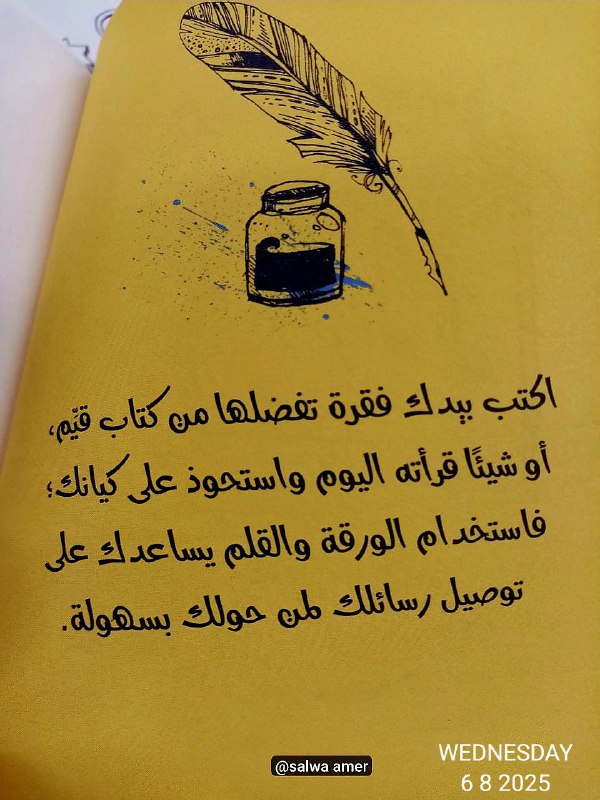 اكتب بيدك فقرة تفضلها من كتاب قيِّم،
أو شيئًا قرأته اليوم واستحوذ على كيانك؛
فاستخدام الورقة والقلم يساعدك على
توصيل رسائلك لمن حولك بسهولة.
@salwa amer
WEDNESDAY
6 8 2025